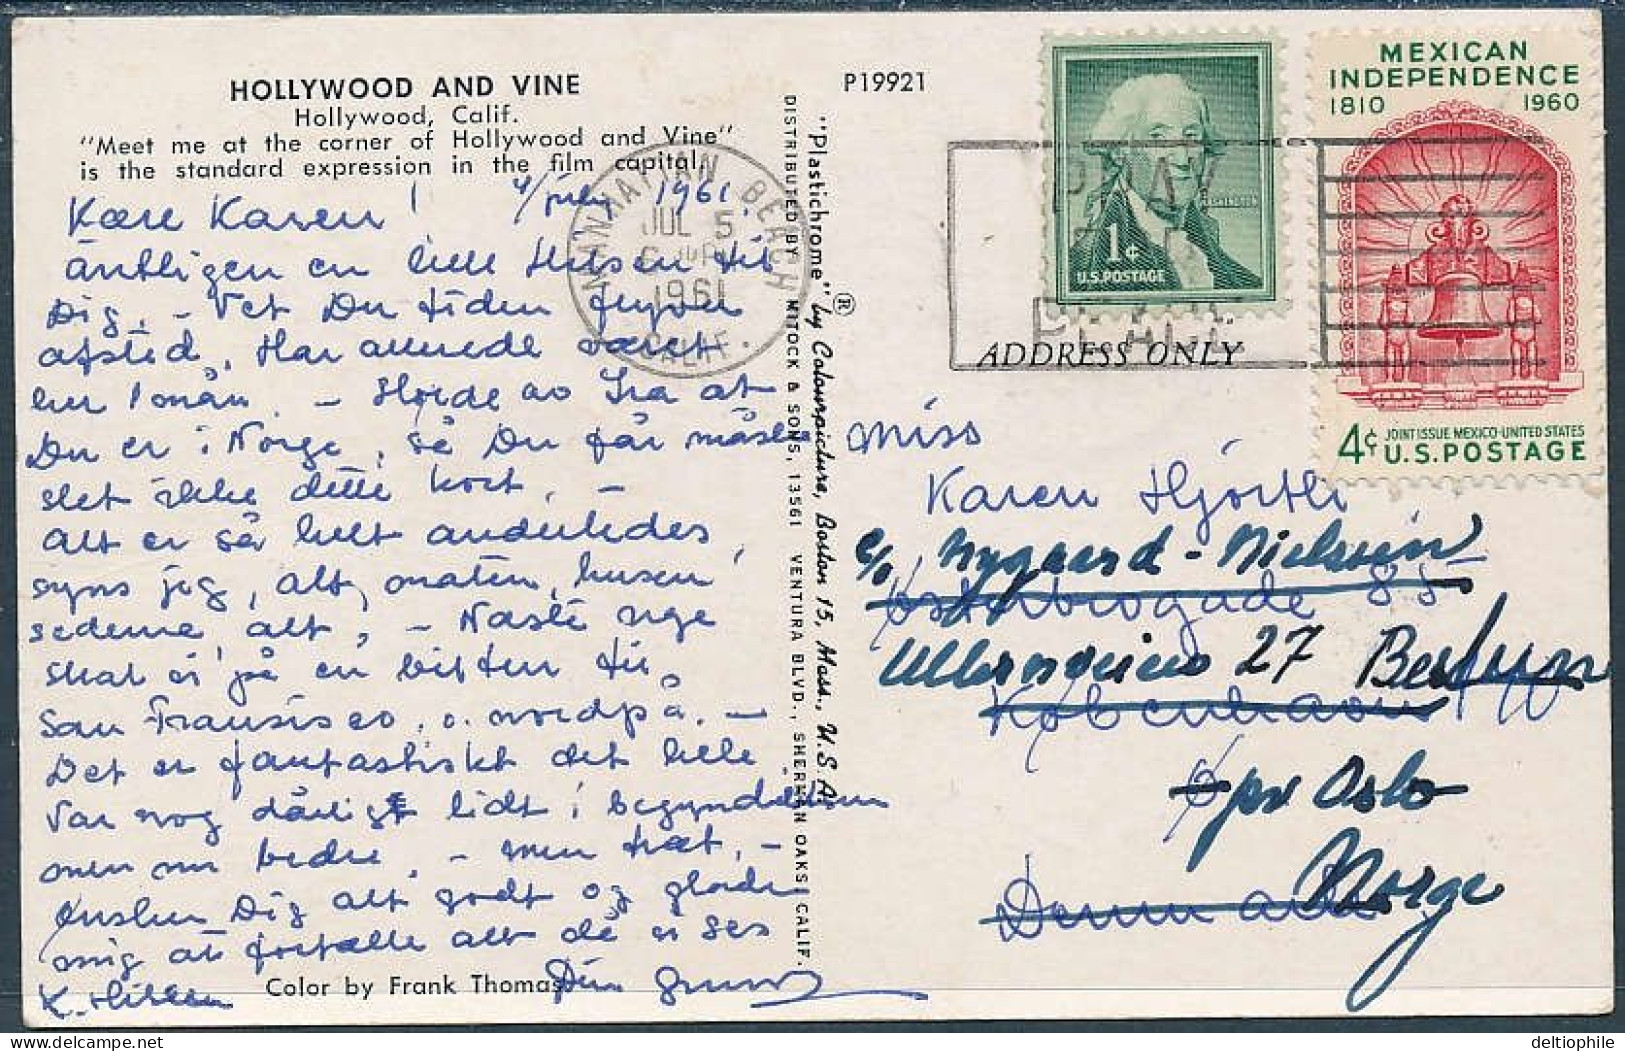 HOLLYWOOD AND VINE
Hollywood, Calif.
"Meet me at the corner of Hollywood and Vine"
is the standard expression in the film capital.
4/july 1961.
Kære Karen!
äntligen en lille Hilsen til
Dig, - Vet Du tiden flyver
afsted, Har allerede været
her 1 mån. - Hörde av Ira at
Du er i Norge, så Du får måske
slet ikke dette kort. -
Alt er så helt anderledes,
syns jeg, alt, maten, husen
sederne, alt, - Näste uge
skal vi på en biltur til
San Fransisco, o. nordpå. -
Det er fantastiskt det hele
Var nog dårligt lidt i begyndelsen
men nu bedre, - men træt, -
Ønsker Dig alt godt og glæder
mig at fortælle alt då vi ses
K. Hilsen
Din
Color by Frank Thomas
P19921
"Plastichrome" ® by Colourpicture, Boston 15, Mass., U.S.A.
DISTRIBUTED BY MITOCK & SONS, 13561 VENTURA BLVD., SHERMAN OAKS, CALIF.
MANHATTAN BEACH
JUL 5
PM
1961
CALIF.
PRAY
FOR
PEACE
1¢
WASHINGTON
U.S. POSTAGE
MEXICAN
INDEPENDENCE
1810 1960
4¢ JOINT ISSUE MEXICO·UNITED STATES
U.S. POSTAGE
ADDRESS ONLY
Miss
Karen Hjorth
c/o Nygaard-Nielsen
Østerbrogade 85
Ullernveien 27 Bestum
København Ø
pr Oslo
Danmark
Norge
deltiophile